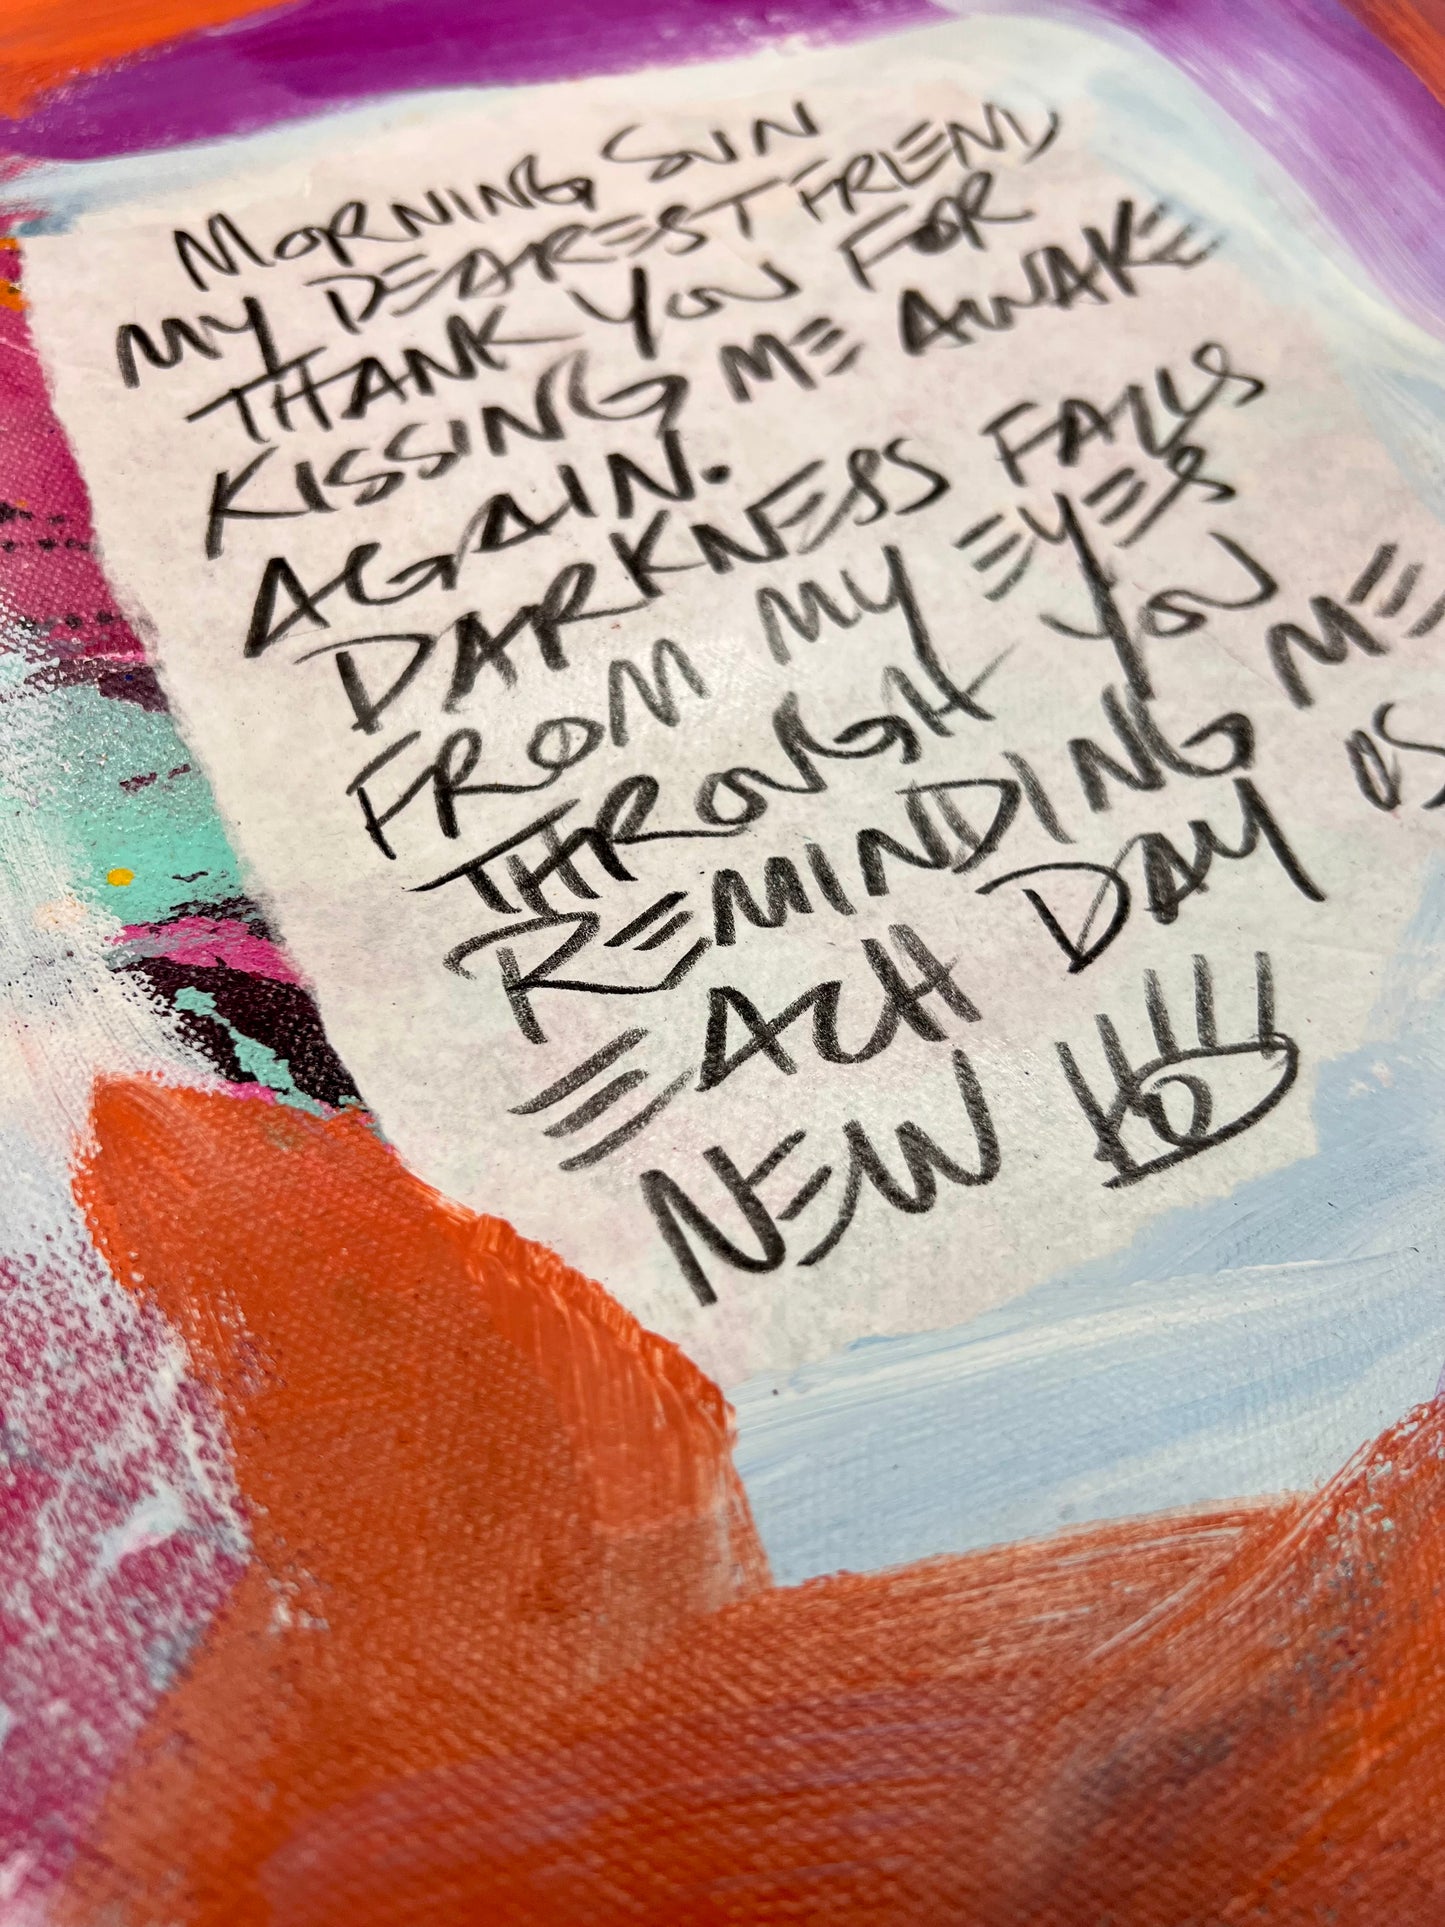 MORNING SUN
MY DEAREST FRIEND
THANK YOU FOR
KISSING ME AWAKE
AGAIN.
DARKNESS FALLS
FROM MY EYES
THROUGH YOU
REMINDING ME
EACH DAY IS
NEW